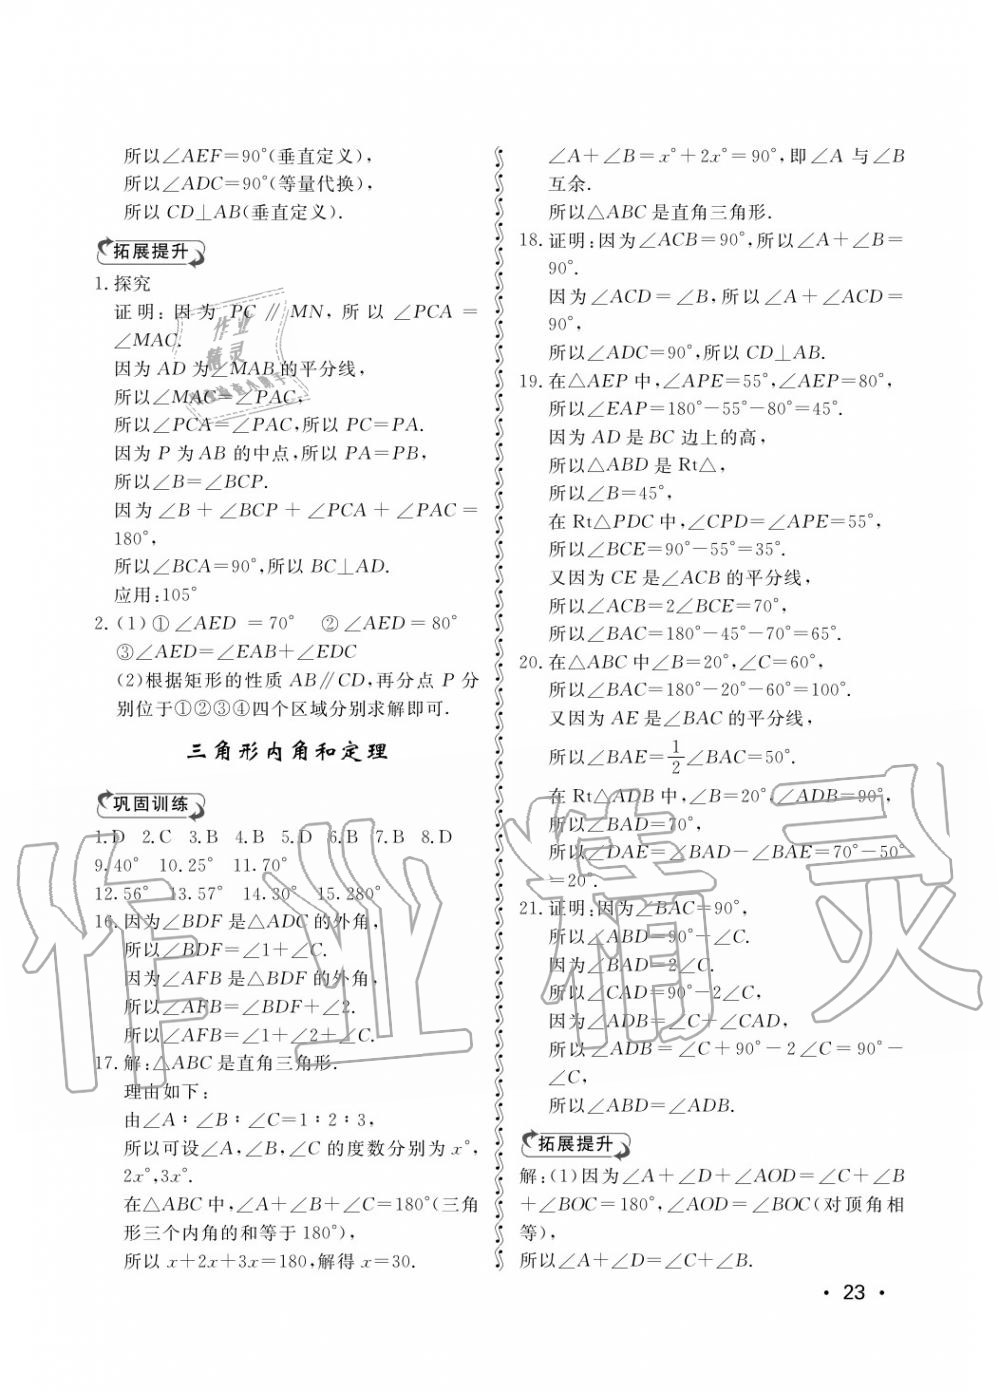 所以∠AEF=90°(垂直定义),
所以∠ADC=90°(等量代换),
所以 CD⊥AB(垂直定义).
拓展提升
1. 探究
证明:因为 PC∥MN,所以∠PCA=
∠MAC.
因为 AD 为∠MAB的平分线,
所以∠MAC=∠PAC,
所以∠PCA=∠PAC,所以 PC=PA.
因为 P 为 AB 的中点,所以 PA=PB,
所以∠B=∠BCP.
因为∠B+∠BCP+∠PCA+∠PAC=
180°,
所以∠BCA=90°,所以 BC⊥AD.
应用:105°
2. (1)①∠AED=70° ②∠AED=80°
③∠AED=∠EAB+∠EDC
(2)根据矩形的性质 AB∥CD,再分点 P 分
别位于①②③④四个区域分别求解即可.
三角形内角和定理
巩固训练
1.D 2.C 3.B 4.B 5.D 6.B 7.B 8.D
9.40° 10.25° 11.70°
12.56° 13.57° 14.30° 15.280°
16. 因为∠BDF 是△ADC 的外角,
所以∠BDF=∠1+∠C.
因为∠AFB 是△BDF 的外角,
所以∠AFB=∠BDF+∠2.
所以∠AFB=∠1+∠2+∠C.
17. 解:△ABC 是直角三角形.
理由如下:
由∠A∶∠B∶∠C=1∶2∶3,
所以可设∠A,∠B,∠C 的度数分别为 x°,
2x°,3x°.
在△ABC 中,∠A+∠B+∠C=180°(三角
形三个内角的和等于 180°),
所以 x+2x+3x=180,解得 x=30.
∠A+∠B=x°+2x°=90°,即∠A 与∠B
互余.
所以△ABC 是直角三角形.
18. 证明:因为∠ACB=90°,所以∠A+∠B=
90°.
因为∠ACD=∠B,所以∠A+∠ACD=
90°,
所以∠ADC=90°,所以 CD⊥AB.
19. 在△AEP 中,∠APE=55°,∠AEP=80°,
所以∠EAP=180°-55°-80°=45°.
因为 AD 是 BC 边上的高,
所以△ABD 是 Rt△,
所以∠B=45°,
在 Rt△PDC 中,∠CPD=∠APE=55°,
所以∠BCE=90°-55°=35°.
又因为 CE 是∠ACB 的平分线,
所以∠ACB=2∠BCE=70°,
所以∠BAC=180°-45°-70°=65°.
20. 在△ABC 中∠B=20°,∠C=60°,
所以∠BAC=180°-20°-60°=100°.
又因为 AE 是∠BAC 的平分线,
所以∠BAE=1/2∠BAC=50°.
在 Rt△ADB 中,∠B=20°,∠ADB=90°,
所以∠BAD=70°,
所以∠DAE=∠BAD-∠BAE=70°-50°
=20°.
21. 证明:因为∠BAC=90°,
所以∠ABD=90°-∠C.
因为∠BAD=2∠C.
所以∠CAD=90°-2∠C,
因为∠ADB=∠C+∠CAD,
所以∠ADB=∠C+90°-2∠C=90°-
∠C,
所以∠ABD=∠ADB.
拓展提升
解:(1)因为∠A+∠D+∠AOD=∠C+∠B
+∠BOC=180°,∠AOD=∠BOC(对顶角相
等),
所以∠A+∠D=∠C+∠B.
· 23 ·
作业精灵
作业
精灵